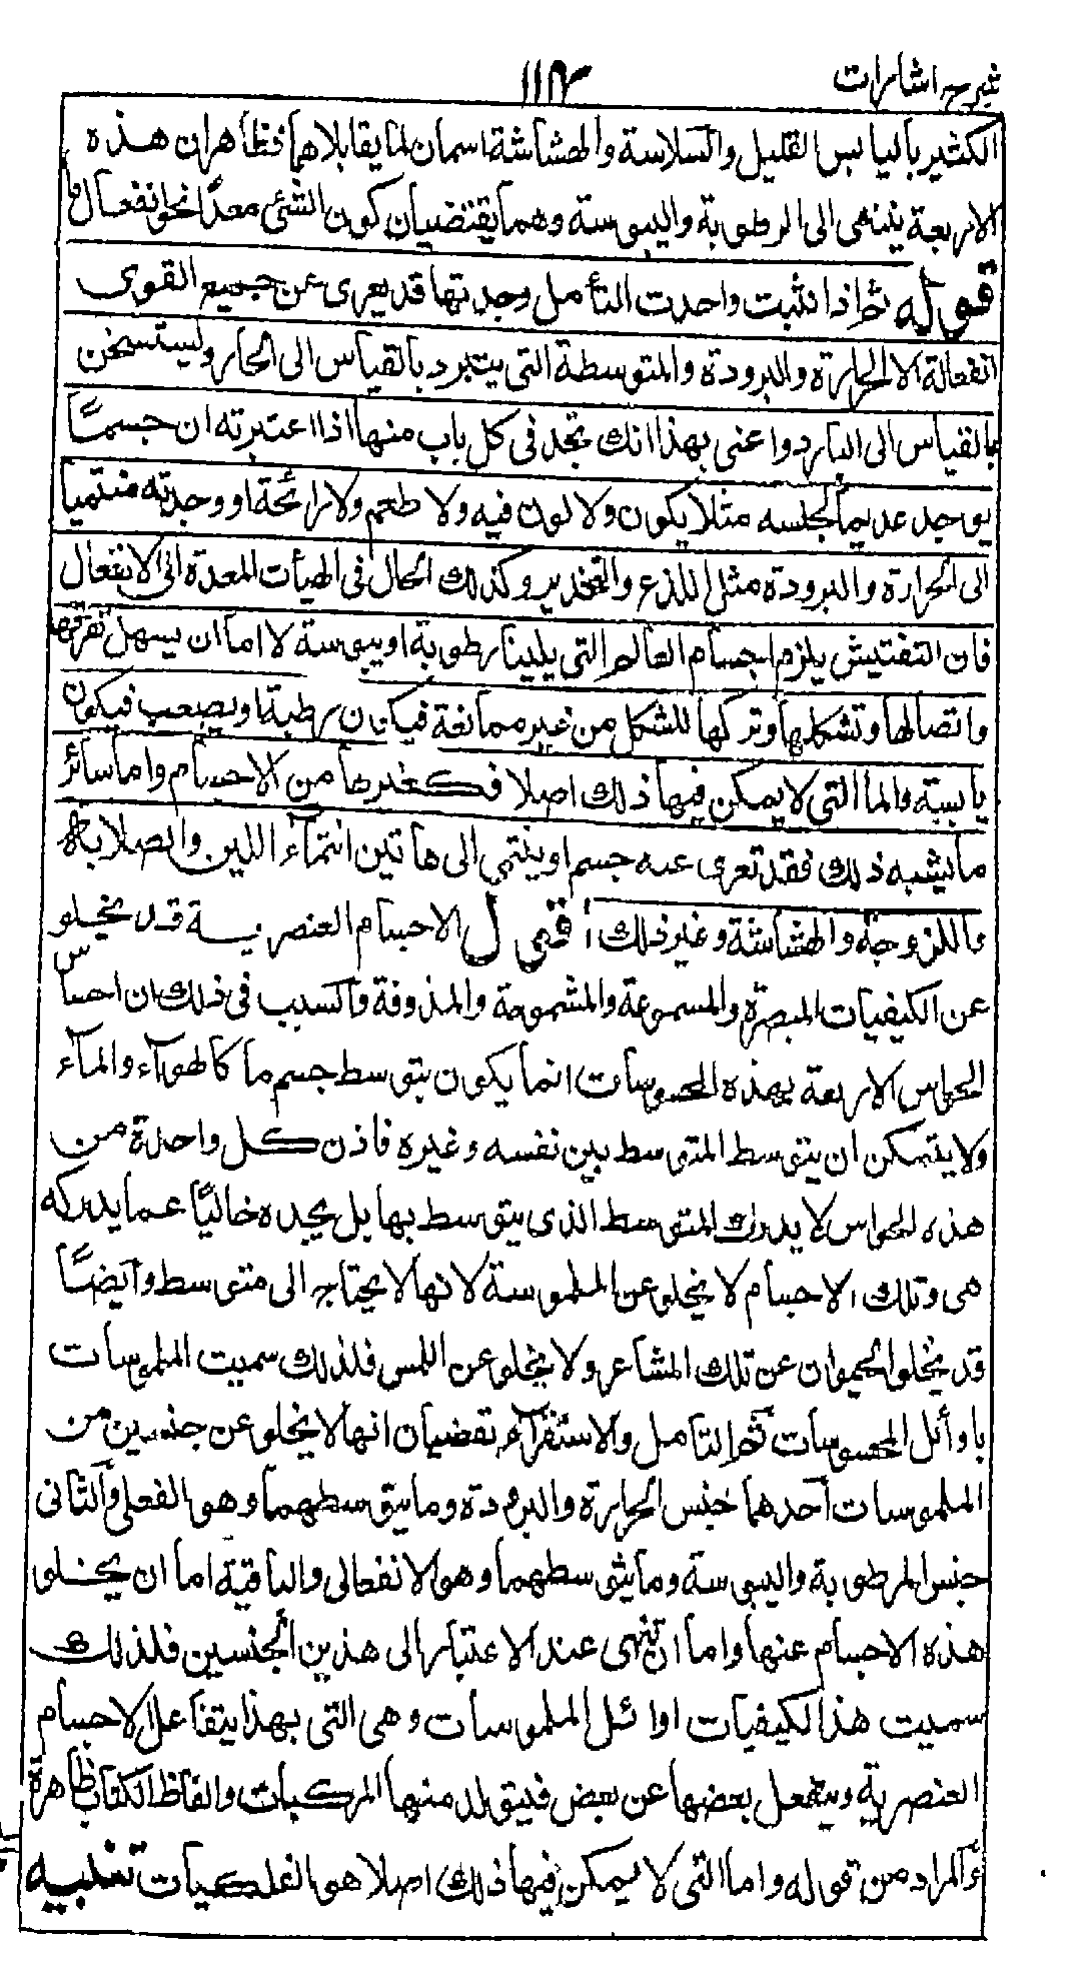 شرح اشارات
١١٣
الكثير باليابس القليل والسلاسة والهشاشة اسمان لما يقابلاهما فظاهر ان هذه
الاربعة ينتهى الى الرطوبة واليبوسة وهما يقتضيان كون الشئ معدا نحو انفعال ما
قوله ثم اذا فتشت واجدت التأمل وجدتها قد يعرى عن جميع القوى
انفعالة الا الحرارة والبرودة والمتوسطة التى يتبرد بالقياس الى الحار وليستسخن
بالقياس الى البارد واعنى بهذا انك تجد فى كل باب منها اذا اعتبرته ان جسمًا
يوجد عديما لجنسه مثلا يكون ولا لون فيه ولا طعم ولا رائحة او وجدته منتميا
الى الحرارة والبرودة مثل اللذع والتخدير وكذلك الحال فى الهيأت المعدة الى الانفعال
فان التفتيش يلزم اجسام العالم التى يلينا رطوبة او يبوسة لا اما ان يسهل تفرقها
واتصالها وتشكلها وتركها للشكل من غير ممانعة فيكون رطبة او يصعب فيكون
يابسة واما التى لا يمكن فيها ذلك اصلا فكغيرها من الاجسام واما سائر
ما يشبه ذلك فقد تعرى عنه جسم او ينتمى الى هاتين انتماء اللين والصلابة
واللزوجة والهشاشة وغير ذلك أقول الاجسام العنصرية قد يخلو
عن الكيفيات المبصرة والمسموعة والمشمومة والمذوقة والسبب فى ذلك ان احساس
الحواس الاربعة بهذه المحسوسات انما يكون بتوسط جسم ما كالهوآء والمآء
ولا يتمكن ان يتوسط المتوسط بين نفسه وغيره فاذن كل واحدة من
هذه الحواس لا يدرك المتوسط الذى يتوسط بها بل يجده خاليًا عما يدركه
هى وتلك الاجسام لا يخلو عن الملموسة لانها لا يحتاج الى متوسط وآيضًا
قد يخلو الحيوان عن تلك المشاعر ولا يخلو عن اللمس فلذلك سميت الملموسات
باوائل المحسوسات ثم التامل والاستقرآء يقضيان انها لا يخلو عن جنسين من
الملموسات احدهما جنس الحرارة والبرودة وما يتوسطهما وهو الفعلى والثانى
جنس الرطوبة واليبوسة وما يتوسطهما وهو الانفعالى والباقية اما ان يخلو
هذه الاجسام عنها واما ان ينتهى عند الاعتبار الى هذين الجنسين فلذلك
سميت هذا الكيفيات اوائل الملموسات وهى التى بهذا يتفاعل الاجسام
العنصرية وينفعل بعضها عن بعض فيتولد منها المركبات والفاظ الكتاب ظاهرة
والمراد من قوله واما التى لا يمكن فيها ذلك اصلا هو الفلكيات تنبيه